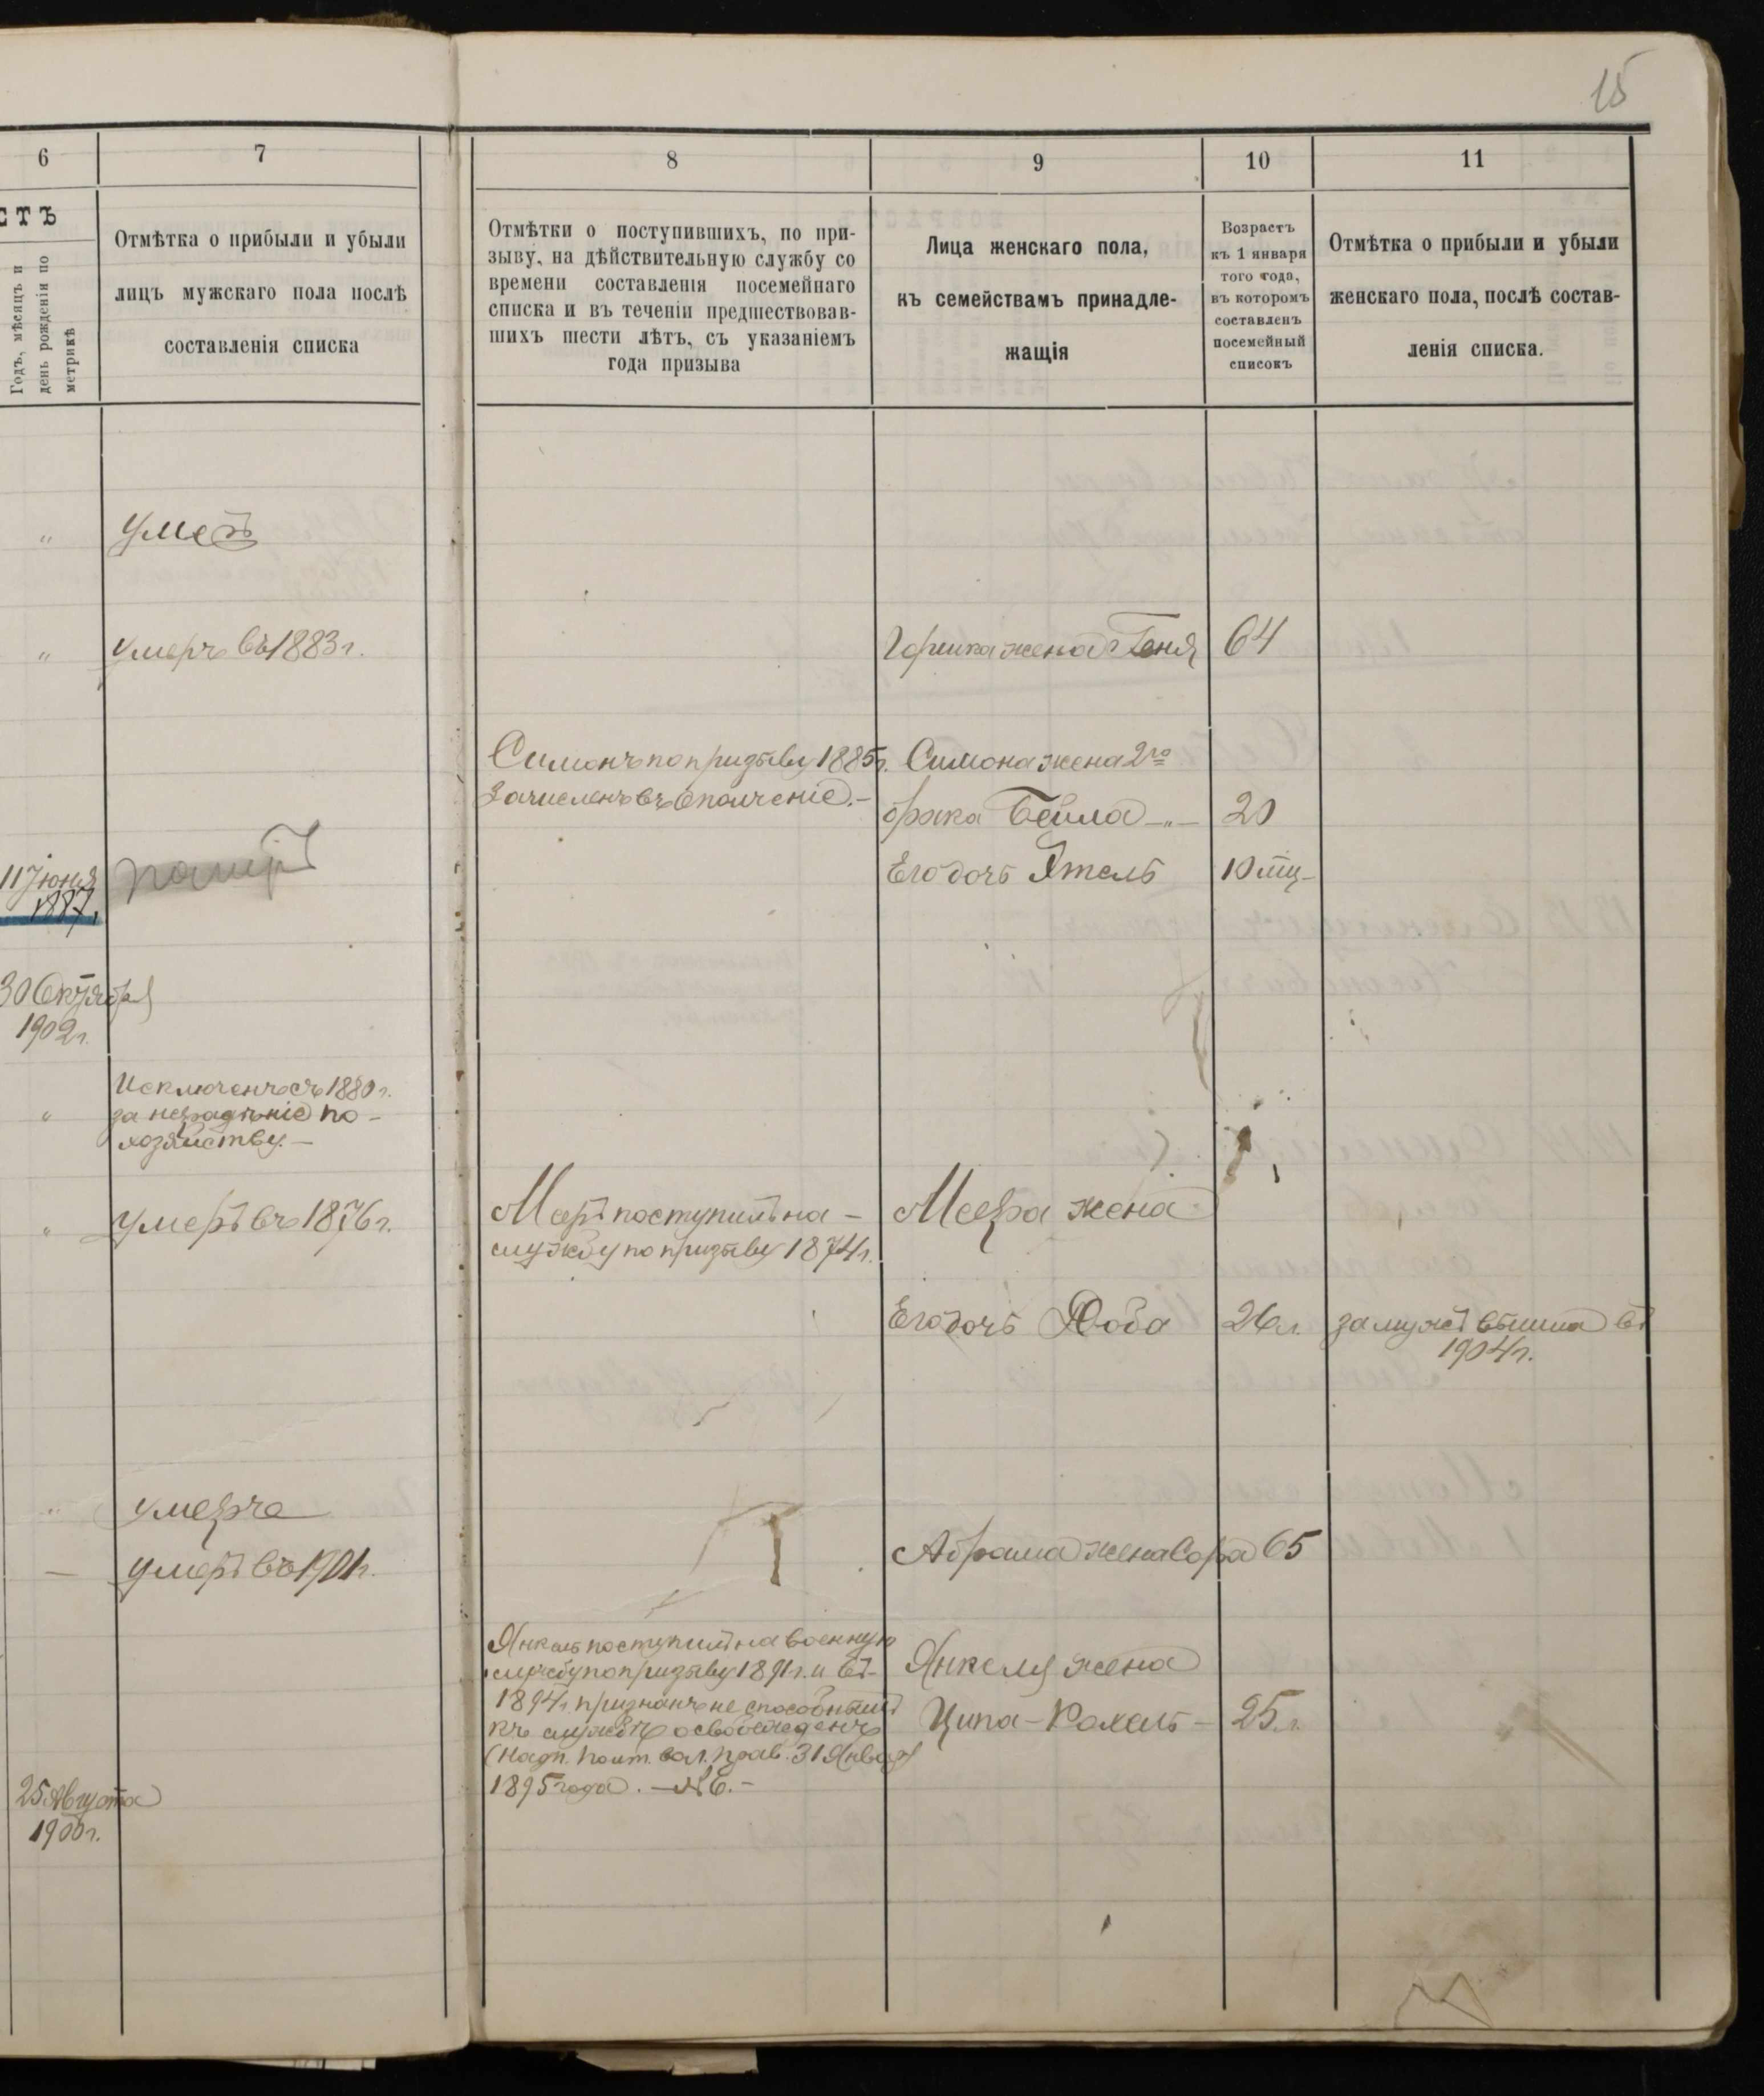 15
6
7
8
9
10
11
СТЪ
Годъ, мѣсяцъ и
день рожденія по
метрикѣ
Отмѣтка о прибыли и убыли
лицъ мужскаго пола послѣ
составленія списка
Отмѣтки о поступившихъ, по при-
зыву, на дѣйствительную службу со
времени составленія посемейнаго
списка и въ теченіи предшествовав-
шихъ шести лѣтъ, съ указаніемъ
года призыва
Лица женскаго пола,
къ семействамъ принадле-
жащія
Возрастъ
къ 1 января
того года,
въ которомъ
составленъ
посемейный
списокъ
Отмѣтка о прибыли и убыли
женскаго пола, послѣ состав-
ленія списка.
„
„ умеръ въ 1883 г.
жена Геня 64
Симонъ по призыву 1885 г.
зачисленъ въ ополченіе.-
Симона жена 2го
брака Бейла -„- 20
Его дочь Этель 10 мц-
117 юня
1887.
30 Октября
1902 г.
„
Исключенъ съ 1880 г.
за нерадѣніе по-
хозяйству.-
„ умеръ въ 1876 г.
поступилъ на -
службу по призыву 1874 г.
Меера жена
Его дочь Доба 26 л. замужъ вышла въ
1904 г.
„ умеръ
— умеръ въ 1901 г.
Абрама жена Сора 65
Янкель поступилъ на военную
службу по призыву 1891 г. и въ-
1894 г. признанъ не способнымъ
къ службѣ освобожденъ
(Надп. вол. прав. 31 Января
1895 года. - № 6.-
Янкеля жена
Ципа-Рохель - 25 л.
25 Августа
1900 г.